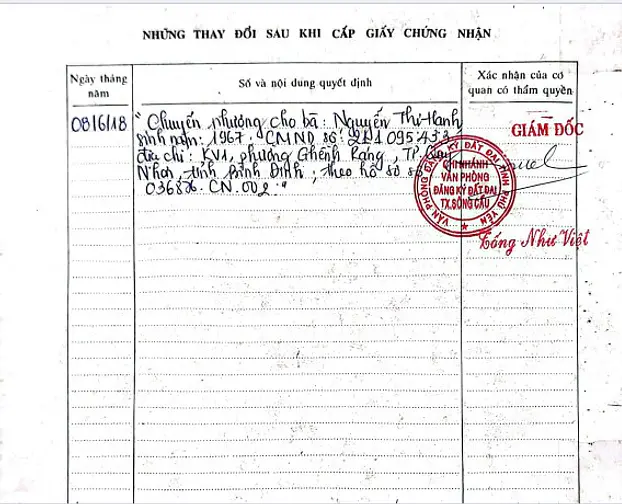 NHỮNG THAY ĐỔI SAU KHI CẤP GIẤY CHỨNG NHẬN
Ngày tháng năm
Số và nội dung quyết định
Xác nhận của cơ quan có thẩm quyền
08/6/18
" Chuyển nhượng cho bà: Nguyễn Thị Hạnh
sinh năm: 1967. CMND số: 211095433
địa chỉ: KV1, phường Ghềnh Ráng, TP Quy
Nhơn, tỉnh Bình Định; theo hồ sơ số
036876. CN. 002 "
GIÁM ĐỐC
VĂN PHÒNG ĐĂNG KÝ ĐẤT ĐAI TỈNH PHÚ YÊN
CHI NHÁNH
VĂN PHÒNG
ĐĂNG KÝ ĐẤT ĐAI
TX.SÔNG CẦU
Tống Như Việt